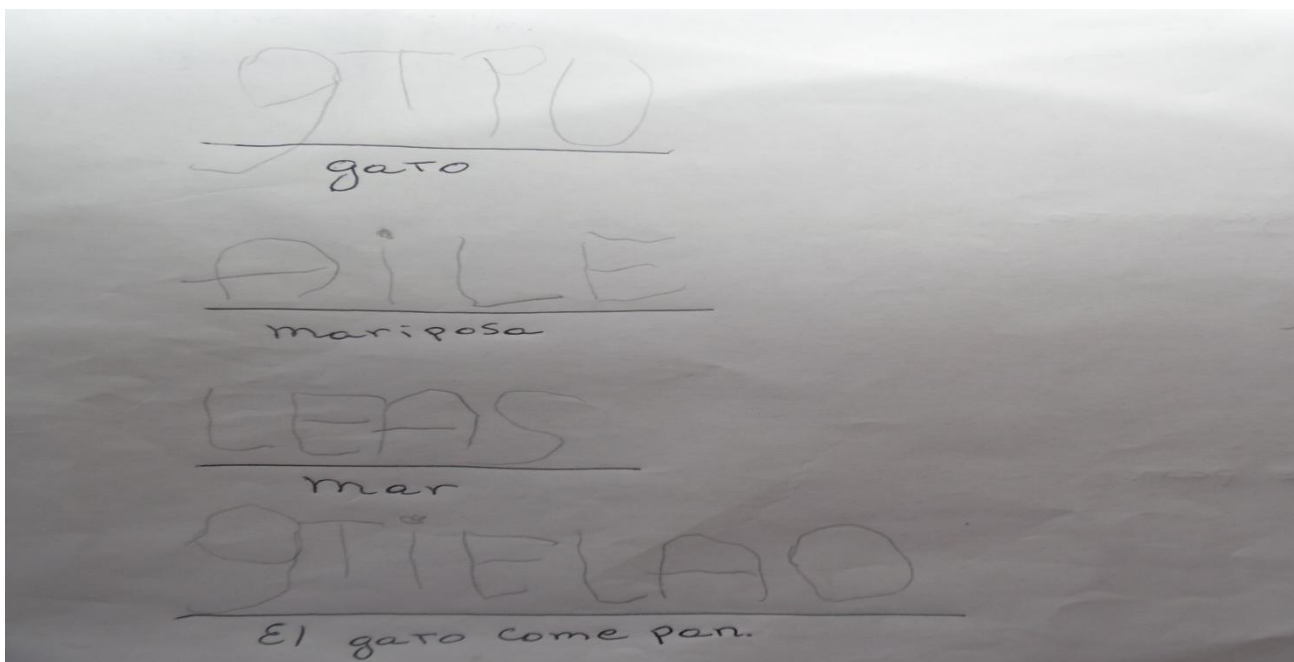 gTPO
gato
AiLE
mariposa
LEAS
mar
gTiELAO
El gato come pan.